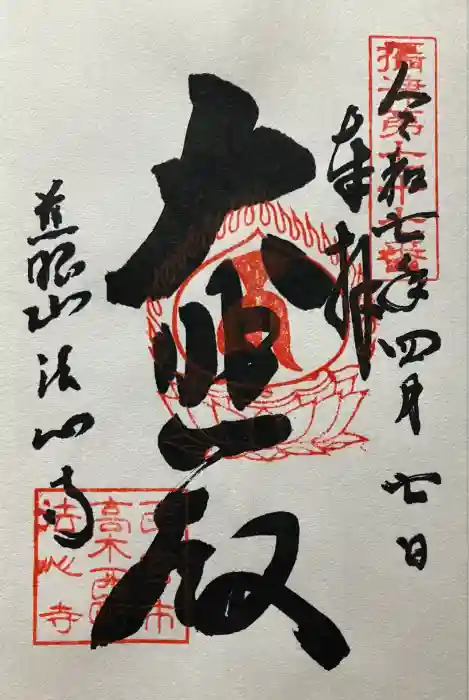 攝津第
番
令和七年四月七日
奉拝
大悲殿
慈眼山法心寺
西宮市
高木西町
法心寺